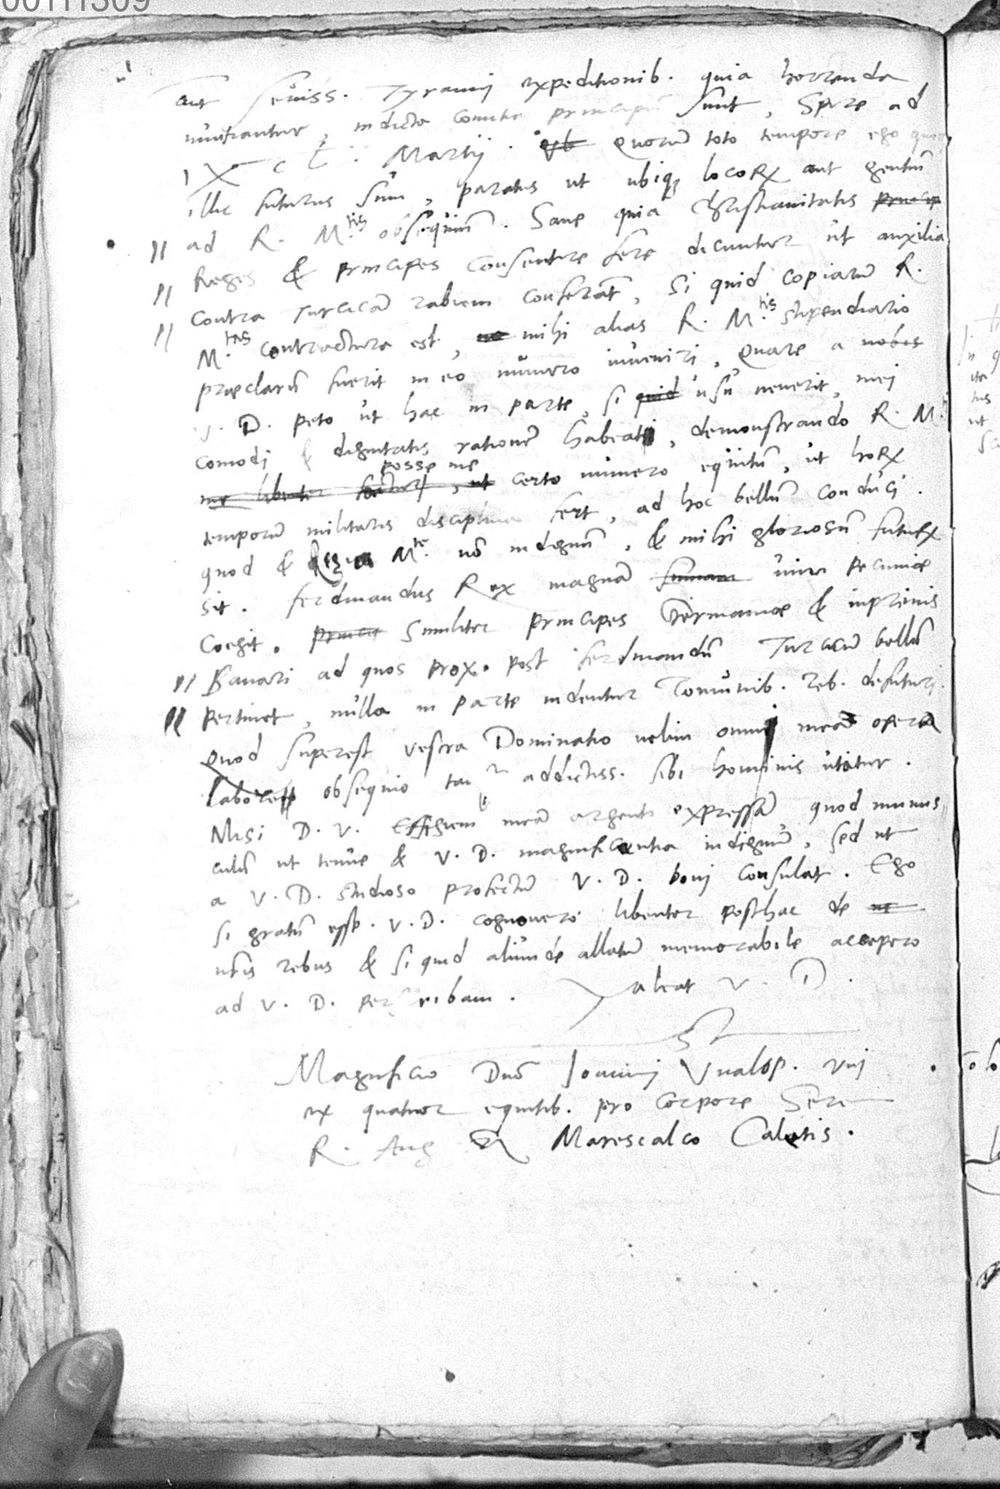 00111309
aut seviss. Tyranni expeditionib. quia horrenda
nuntiantur, indicta comitia principum sunt, Spire ad
Martij. quorum toto tempore ego
illic futurus sum, paratus ut ubiq locorx aut gentiũ
ad R. M.tis obsequium. Sane quia Christianitatis
Reges & principes consentire fere dicuntur ut auxilia
contra Turcicam rabiem conferant, si quid copiarũ R.
M.tas contractura est, mihi alias R. M.tis stipendiario
præclarũ fuerit in eo numero inveniri, Quare a nobis
v. D. peto ut hac in parte, si quid usu venerit, mei
comodi & dignitatis rationem habeat, demonstrando R. M.ti
me libenter posse me, ut certo numero equitũ, ut horx
temporũ militaris disciplina fert, ad hoc bellũ conduci.
quod & Regia M.te nõ indignũ, & mihi gloriosũ futurx
sit. Ferdinandus Rex magnã summam vim pecuniæ
coegit. Similiter principes Germaniæ & inprimis
Bavari ad quos prox. post Ferdinandũ Turcicũ bellũ
pertinet, nulla in parte videntur comunib. reb. defuturi.
Quod superest vestra Dominatio velim omni mea opera
labore obsequio addictiss. sibi hominis utatur.
Misi D. V. Effigiem meã argento expressã, quod munus
culũ ut tenue & V. D. magnificentia indignũ, sed ut
a V. D. studioso profectũ V. D. boni consulat. Ego
si gratũ esse V. D. cognovero libenter posthac de
nris rebus & si quid aliunde allatũ memorabile accepero
ad V. D. perscribam. Valeat V. D.
Magnifico Dnõ Joanni Uvalop. uni
ex quatuor equitib. pro corpore Sere
R. Ang. & Marescalco Caletis.